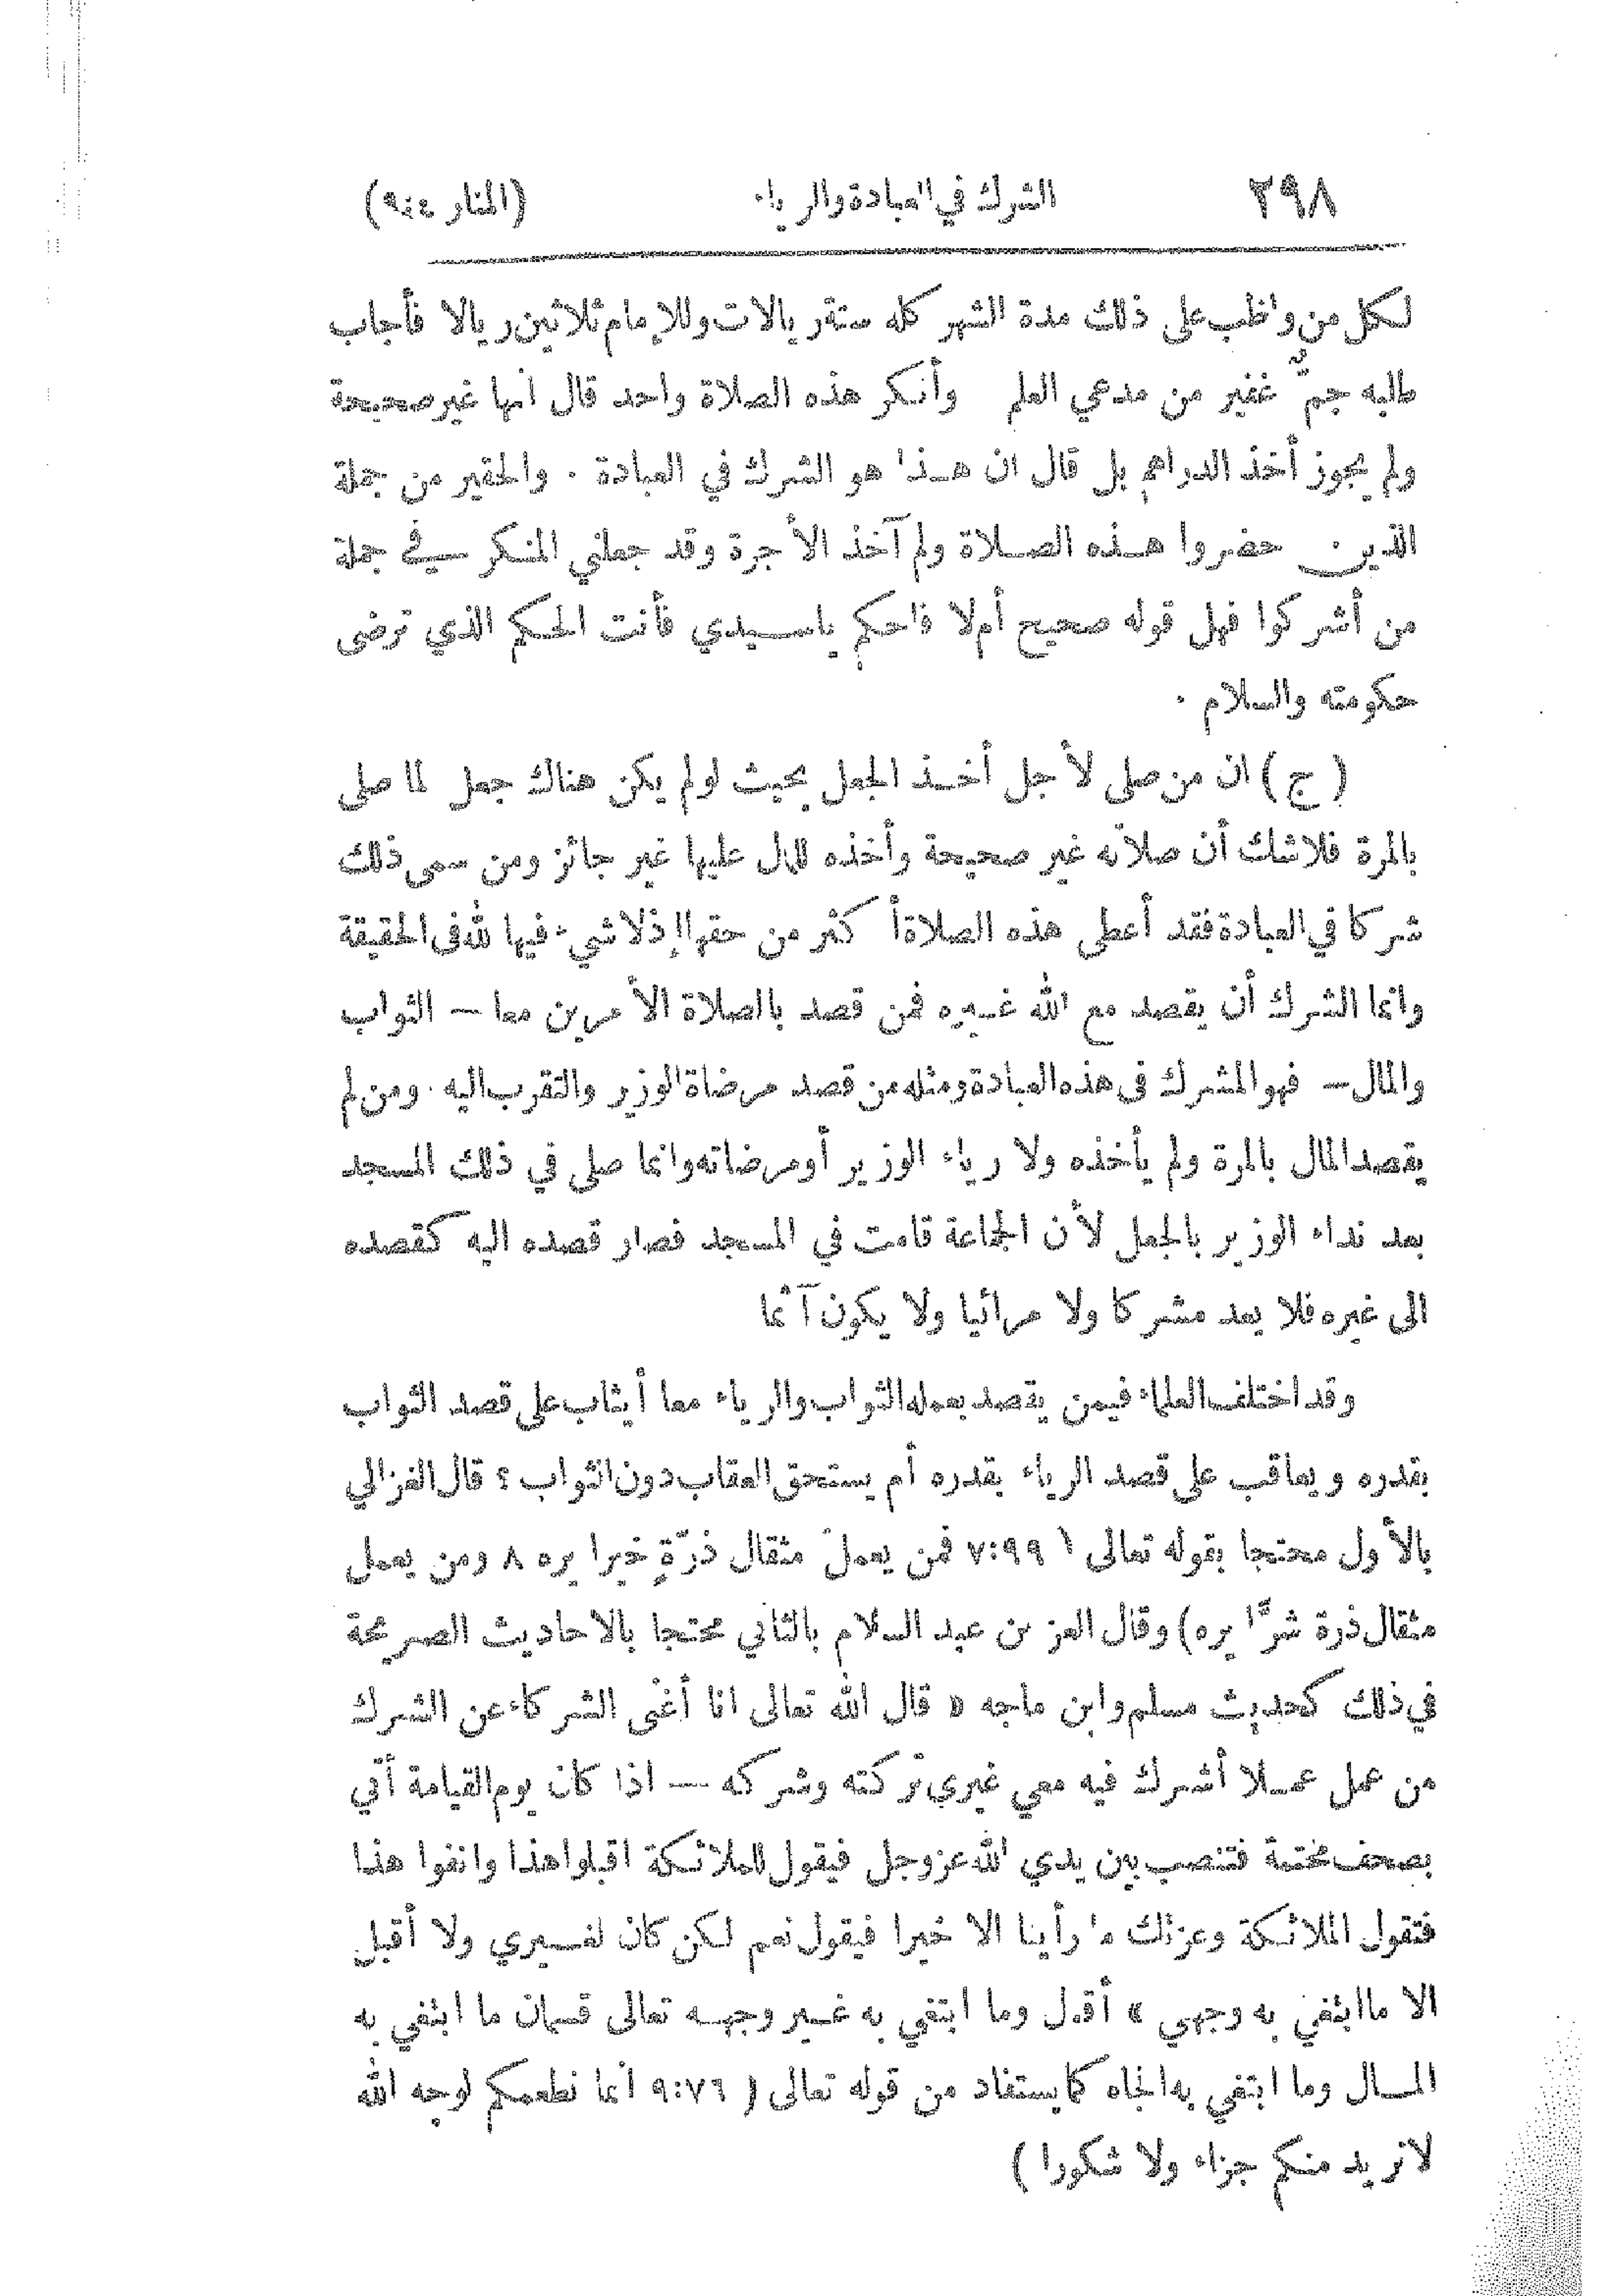 ٢٩٨ الشرك في العبادة والرياء (المنار ٤: ٩)
لكل من واظب على ذلك مدة الشهر كله ستة ريالات وللإمام ثلاثين ريالا فأجاب
طلبه جمٌّ غفير من مدعي العلم وأنكر هذه الصلاة واحد قال انها غير صحيحة
ولم يجوز أخذ الدراهم بل قال ان هـذا هو الشرك في العبادة . والحقير من جملة
الذين حضروا هـذه الصـلاة ولم آخذ الأجرة وقد جعلني المنكر في جملة
من أشركوا فهل قوله صحيح أم لا فاحكم ياسـيدي فأنت الحكم الذي ترضى
حكومته والسلام .
( ج ) ان من صلى لأجل أخـذ الجعل بحيث لو لم يكن هناك جعل لما صلى
بالمرة فلا شك أن صلاته غير صحيحة وأخذه المال عليها غير جائز ومن سمى ذلك
شركا في العبادة فقد أعطى هذه الصلاة أكثر من حقها إذ لا شيء فيها لله فى الحقيقة
وانما الشرك أن يقصد مع الله غـيره فمن قصد بالصلاة الأمرين معا — الثواب
والمال — فهو المشرك فى هذه العبادة ومثله من قصد مرضاة الوزير والتقرب اليه . ومن لم
يقصد المال بالمرة ولم يأخذه ولا رياء الوزير أو مرضاته وانما صلى في ذلك المسجد
بعد نداء الوزير بالجعل لأن الجماعة قامت في المسجد فصار قصده اليه كقصده
الى غيره فلا يعد مشركا ولا مرائيا ولا يكون آثما
وقد اختلف العلماء فيمن يقصد بعمله الثواب والرياء معا أيثاب على قصد الثواب
بقدره ويعاقب على قصد الرياء بقدره أم يستحق العقاب دون الثواب ؟ قال الغزالي
بالأول محتجا بقوله تعالى ( ٧:٩٩ فمن يعملْ مثقال ذرّةٍ خيرا يره ٨ ومن يعمل
مثقال ذرة شرًّا يره) وقال العز بن عبد السلام بالثاني محتجا بالاحاديث الصريحة
في ذلك كحديث مسلم وابن ماجه « قال الله تعالى انا أغنى الشركاء عن الشرك
من عمل عمـلا أشـرك فيه معي غيري تركته وشركه — اذا كان يوم القيامة أتي
بصحف مختمة فتنصب بين يدي الله عز وجل فيقول للملائكة اقبلوا هذا وانفوا هذا
فتقول الملائكة وعزتك ما رأينا الا خيرا فيقول نعم لكن كان لغـيري ولا أقبل
الا ما ابتغي به وجهي » أقول وما ابتغي به غـير وجهـه تعالى قسمان ما ابتغي به
المـال وما ابتغي به الجاه كما يستفاد من قوله تعالى ( ٩:٧٦ انما نطعمكم لوجه الله
لا نريد منكم جزاء ولا شكورا )